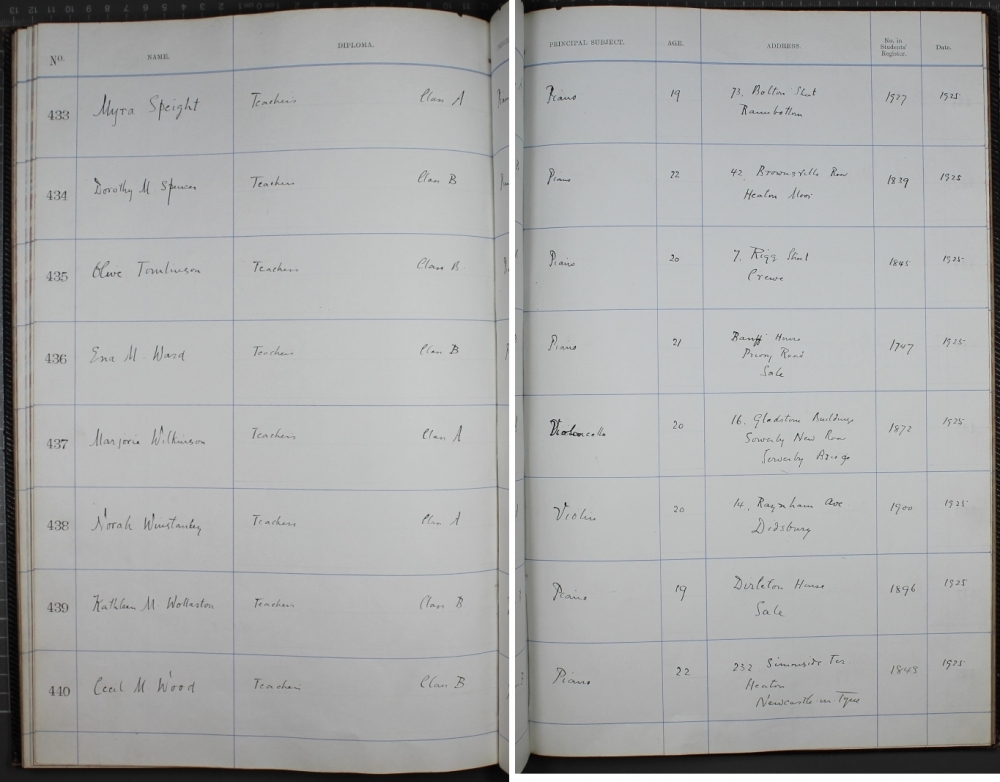 No. NAME. DIPLOMA. PRINCIPAL SUBJECT. AGE. ADDRESS. No. in Students' Register. Date.
433 Myra Speight Teachers Class A Piano 19 73. Bolton Street 1927 1925
Ramsbottom
434 Dorothy M Spencer Teachers Class B Piano 22 42. Brownsville Row 1839 1925
Heaton Moor
435 Olive Tomlinson Teachers Class B Piano 20 7. Rigg Street 1845 1925
Crewe
436 Ena M. Ward Teachers Class B Piano 21 Banff House 1747 1925
Priory Road
Sale
437 Marjorie Wilkinson Teachers Class A Violoncello 20 16. Gladstone Buildings 1872 1925
Sowerby New Row
Sowerby Bridge
438 Norah Winstanley Teachers Class A Violin 20 14. Raynham Ave 1900 1925
Didsbury
439 Kathleen M. Wollaston Teachers Class B Piano 19 Dirleton House 1896 1925
Sale
440 Cecil M Wood Teachers Class B Piano 22 232 Simonside Ter. 1843 1925
Heaton
Newcastle on Tyne